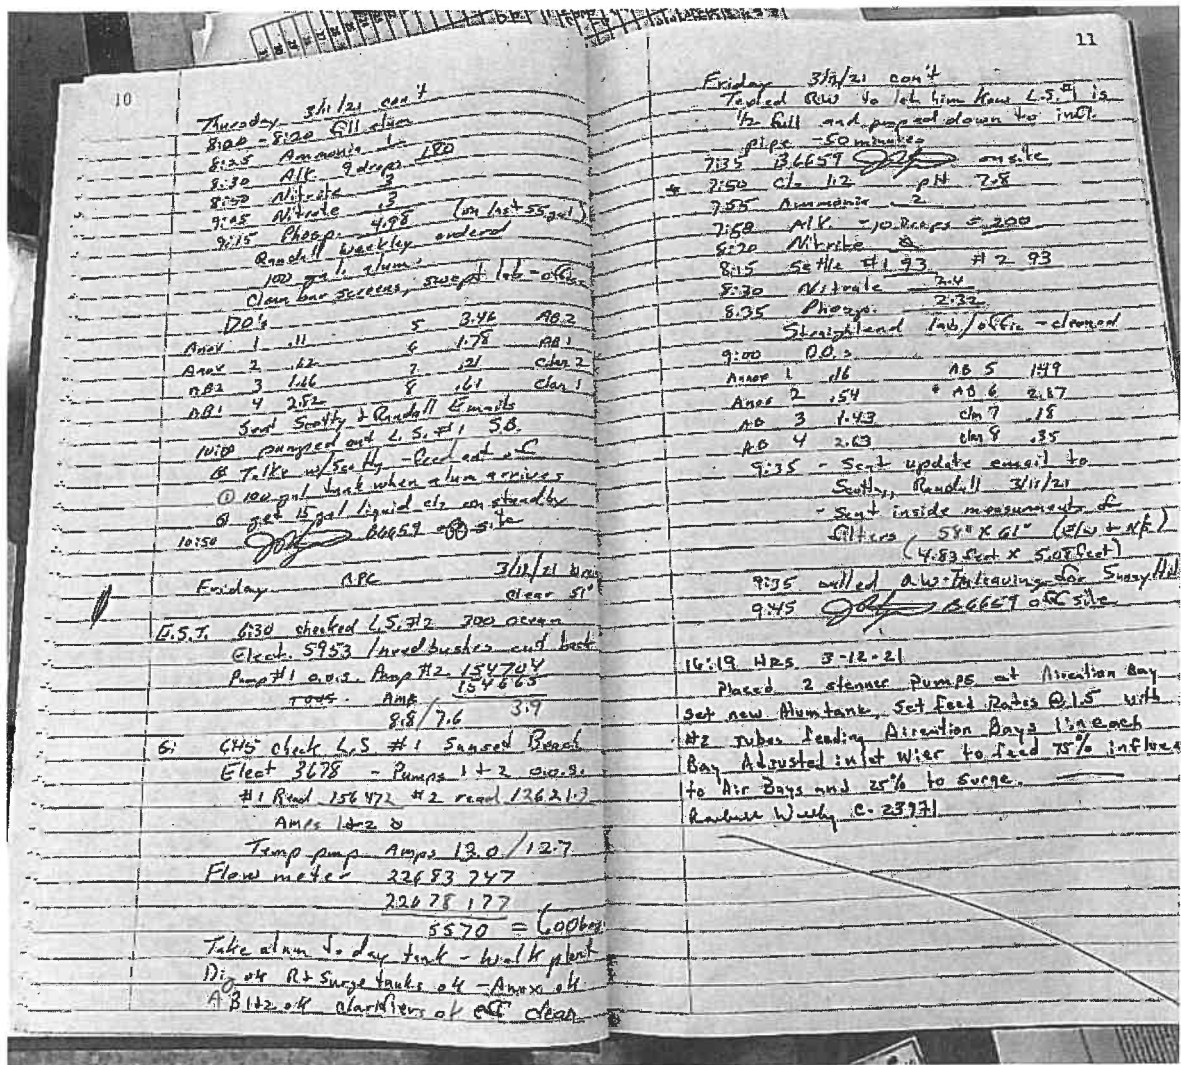 10
Thursday 3/11/21 con't
8:00 - 8:20 Fill alum
8:25 Ammonia 1
8:30 Alk. 9 drops 180
8:50 Nitrite 3
9:05 Nitrate .3
9:15 Phosp. 4.98 (on last 55 gal)
Randall Weekly ordered
100 gal. alum.
Clean bar screens, swept lab - office
DO's
Anox 1 .11 5 3.46 AB2
Anox 2 .62 6 1.78 AB1
AB2 3 1.66 7 .21 Clar 2
AB1 4 2.82 8 .61 Clar 1
Sent Scotty & Randall Emails
10:00 pumped out L.S. #1 S.B.
Talke w/Scotty - feed out of
① 100 gal tank when alum arrives
get 15 gal liquid clz on standby
10:50 B6659 off site
Friday 3/12/21
Clear 51°
E.S.T. 6:30 checked L.S. #2 300 ocean
Elect. 5953 / need bushes cut back
Pump #1 o.o.s. Pump #2 154704
Amp 154665
8.8/7.6 39
6: 6:45 check L.S #1 Sunset Beach
Elect 3678 - Pumps 1+2 o.o.s.
#1 Read 156472 #2 read 126213
Amps 1+2
Temp pump Amps 13.0/12.7
Flow meter 22683747
22678177
5570 =
Take alum to day tank - walk plant
Dig ok R+ Surge tanks ok - Anox ok
AB 1+2 ok clarifiers ok eff clean
11
Friday 3/12/21 con't
Texted RW to let him know L.S. #1 is
1/2 full and pumped down to infl.
pipe - 50 minutes
7:35 B6659 onsite
* 7:50 clz 1.2 pH 7.8
7:55 Ammonia 2
7:58 Alk. - 10 Drops = 200
8:20 Nitrite
8:15 Settle #1 93 #2 93
8:30 Nitrate 2.4
8:35 Phosp. 2.32
Straightend lab/office - cleaned
9:00 D.O.s
Annox 1 .16 AB 5 1.49
Anox 2 .54 * AB 6 2.87
AB 3 1.43 clar 7 .18
AB 4 2.63 clar 8 .35
9:35 - Sent update email to
Scotty, Randall 3/11/21
- Sent inside measurments of
filters 58" X 61" (E/W + N/S)
(4.83 feet X 5.08 feet)
9:35 called R.W. - I'm leaving for Sunny Hill
9:45 B6659 off site
16:19 HRS 3-12-21
Placed 2 stenner Pumps at Airration Bay
Set new Alum tank, Set feed Rates @ 1.5 with
#2 tubes feeding Airration Bays 1 in each
Bay Adjusted inlet Wier to feed 75% influen
to Air Bays and 25% to Surge.
Weekly C-23971